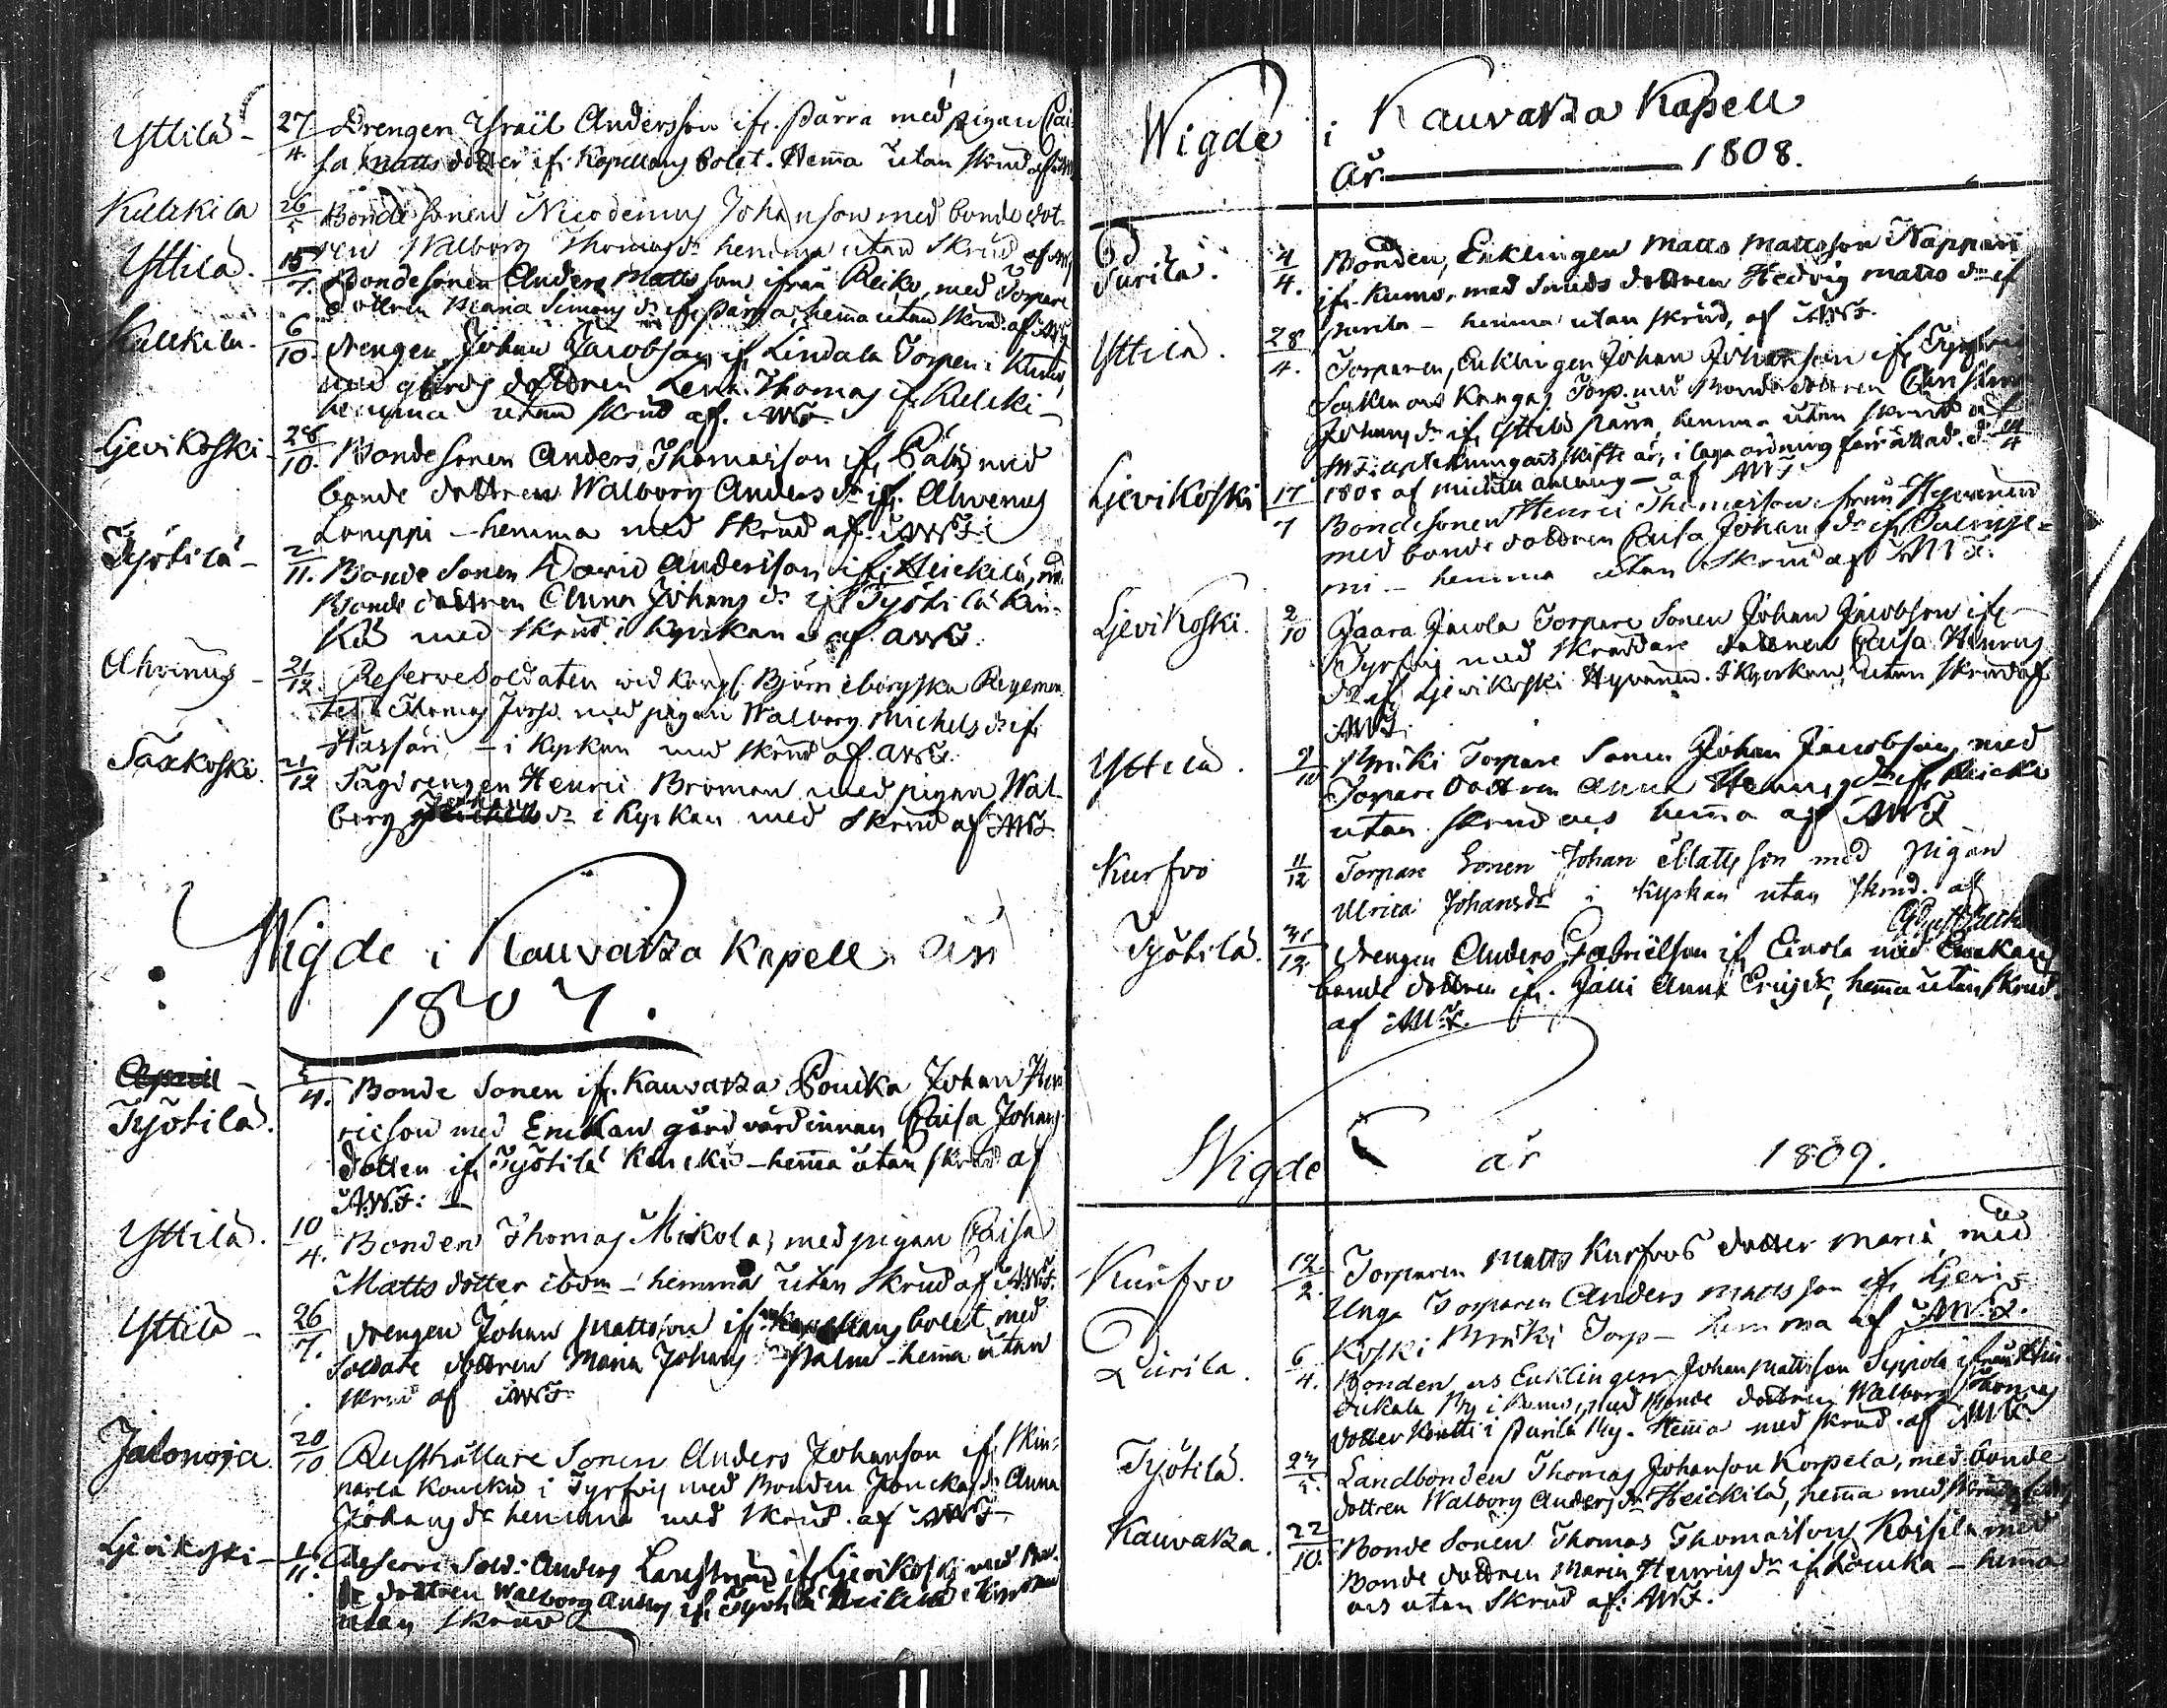 Yttilä - 27/4 Drengen Israël Andersson ifr. Pärra med pigan Cai
sa Matts dotter ifr. Kapellans bolet. Hema utan skrud af AWF
Kulckila 26/5 Bonde sonen Nicodemus Johanson med bonde dot-
ren Walborg Thomas dr hemma utan skrud af AWF
Yttilä. 15/7. Bondesonen Anders Mattsson ifrån Reiko, med Torpare
dottren Maria Simons dr ifr Pärra, hema utan skrud. af AWF
Kulckila. 6/10. drengen Johan Jacobson if Lindala Torpen i Kumo,
med gårds dottren Lena Thomas if Kulcki-
hemma utan skrud af. AWF.
Ljevikoski - 28/10. Bondesonen Anders Thomasson ifr med
bonde dottren Walborg Anders dr if. Ahvenus
Loneppi - hemma med skrud af. AWF.
Työtilä - 2/11. Bonde Sonen David Andersson if. Heickilä, med
Bonde dottren Anna Johans dr if Työtilä Kau-
Kis med skrud i kyrkan af. AWF.
Ahvenus - 21/12. Reserve Soldaten wid Kongl. Björneborgska Regemen
tet Thomas med pigan Walborg Michels dr if
- i kyrkan med skrud af. AWF.
Säxkoski. 21/12 Sågdrengen Henric Broman med pigan Wal-
borg Johans dr i kyrkan med skrud af AWF.
Wigde i Kauvatza Kapell år
1807.
April -
Työtilä. 5/4. Bonde Sonen ifr. Kauvatza Poucka Johan Hen
ricson med Enckan gård värdinnan Caisa Johans
dotten if. Työtilä Kauckis - hema utan skrud af
AWF:
Yttilä. 10/4. Bonden Thomas Mikola, med pigan Caisa
Matts dotter ibdm - hemma utan skrud af AWF.
Yttilä - 26/7. drengen Johan Mattsson if. Kapellans bolet med
soldate dottren Maria Johans Palm - hema utan
skrud af AWF.
Jalonoja. 20/10 Rusthållare Sonen Anders Johanson if Skin-
narla Kouckis i Tyrfvis med Bonden Jonckas dr Anna
Johans dr hemma med skrud. af AWF -
Ljevikoski - 1/11. Reserve Sold: Anders Langstrand if. Ljevikoski med Bon-
de dottren Walborg Anders if. Työtilä Heikilä i kyrkan
utan skrud
Wigde i Kauvatza Kapell
år 1808.
Purila. 4/4. Bonden, Enklingen Matts Mattsson Nappari
ifr. Kumo, med Smeds dottren Hedvig Matts dr if
Purila - hemma utan skrud, af AWF.
Yttilä. 28/4. Torparen, Enklingen Johan Johanson if. Tyrfvis
Socken och Kangas Torp. med Bonde dottren Christina
Johans dr if Yttilä Pärra, hemma utan skrud af
AWF. skifte är, i laga ordning förrättad d. 14/4
1808 af Michel - af AWF
Ljevikoski 17/7 Bondesonen Henric Thomasson ifrån Hyvänen
med bonde dottren Caisa Johans dr if
mi - hemma utan skrud af AWF.
Ljevikoski. 2/10 Jaara Jacola Torpare Sonen Johan Jacobson if
Tyrfvis med skräddare dottren Caisa Henrics
dr if Ljevikoski Hyvänen. i Kyrkan, utan skrud af
AWF.
Yttilä. 2/10 Prüki Torpare Sonen Johan Jacobson, med
Torpare dottren Anna Henrics dr if Reicko
utan skrud och hema af AWF
Kurfvo 11/12 Torpare Sonen Johan Mattsson med pigan
Ulrica Johansdr i kyrkan utan skrud. af
Työtilä. 31/12. drengen Anders Gabrielson if Einola med Enckan
bonde dottren if. Jalli Anna Ericsdr, hema utan skrud.
af AWF.
Wigde år 1809.
Kurfvo 12/2. Torparen Matts Kurfvos dotter Maria, med
Unga Torparen Anders Mattsson if Ljevi-
Koski Prüki Torp - hemma af AWF.
Purila. 6/4. Bonden och Enklingen Johan Mattsson Seppola ifrån
By i Kumo, med Bonde dottren Walborg Thomas
dotter Kontti i Purila By. Hema med skrud. af AWF
Työtilä. 23/5. Landbonden Thomas Johanson Korpela, med bonde
dottren Walborg Anders dr Heickilä, hema med
Kauvatza. 22/10. Bonde Sonen Thomas Thomasson Koisila med
Bonde dottren Maria Henrics dr if. Poucka - hema
och utan skrud af: AWF.